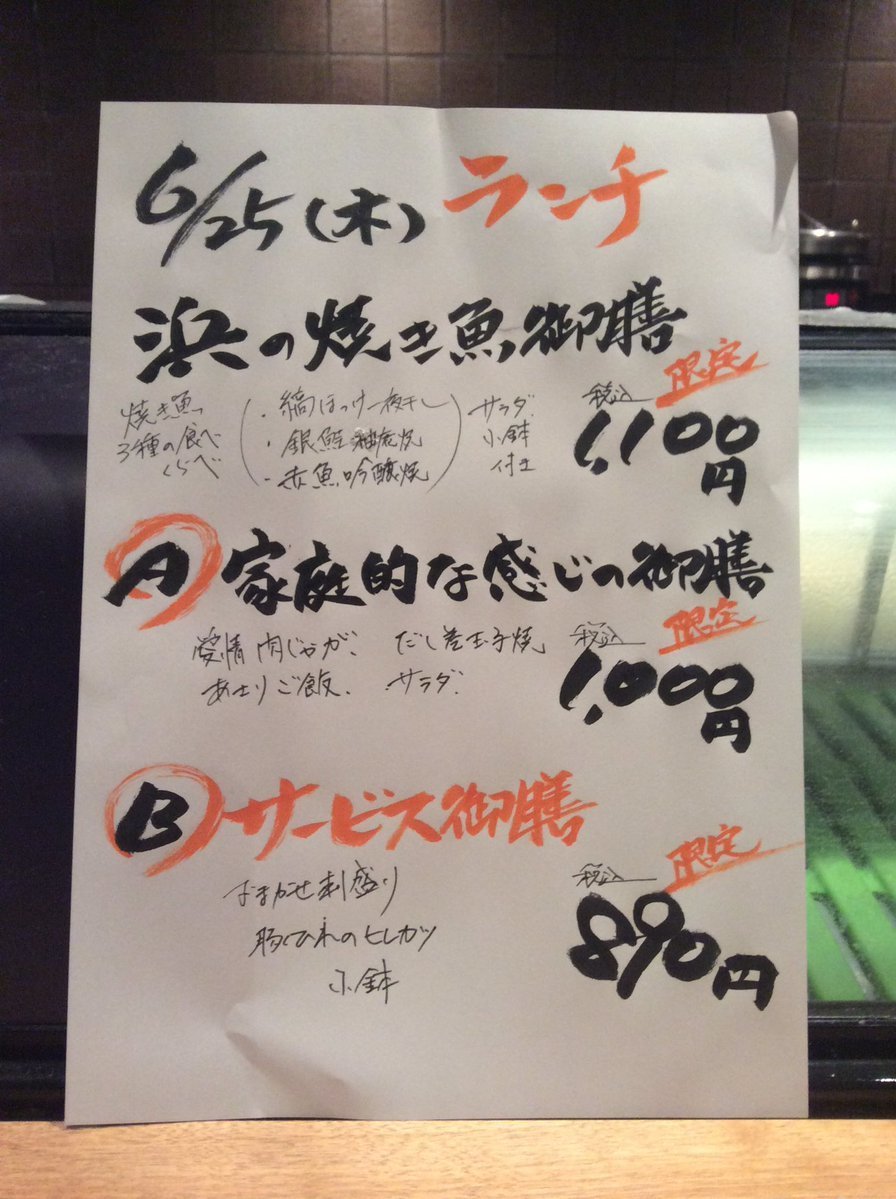 6/25(木) ランチ
浜の焼き魚御膳
限定
焼き魚
3種の食べ
くらべ
・縞ほっけ一夜干し
・銀鮭西京焼
・赤魚吟醸焼
サラダ
小鉢
付き
税込
1,100
円
A 家庭的な感じの御膳
限定
愛情肉じゃが、だし巻玉子焼
あさりご飯、サラダ
税込
1,000
円
B サービス御膳
限定
おまかせ刺盛り
豚ひれのヒレカツ
小鉢
税込
890円